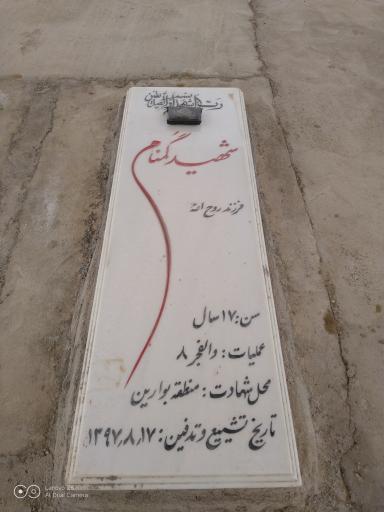 شهید گمنام
فرزند روح الله
سن: ۱۷ سال
عملیات: والفجر ۸
محل شهادت: منطقه بوارین
تاریخ تشییع و تدفین: ۱۳۹۷٫۸٫۱۷
Lenovo Z6 Lite
AI Dual Camera